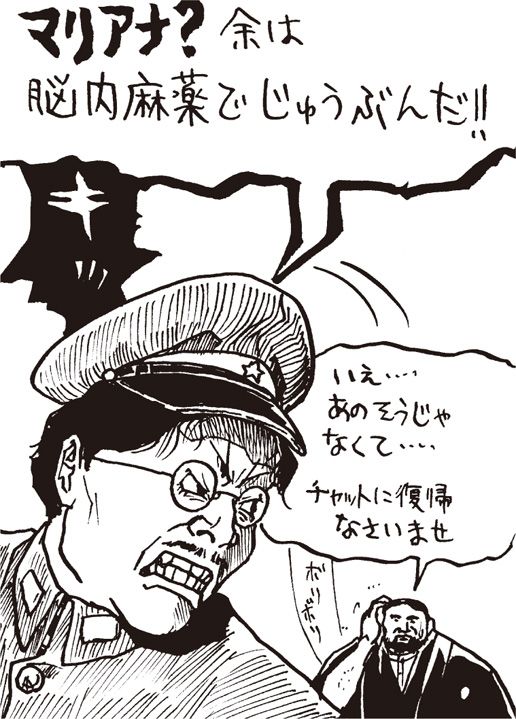 マリアナ? 余は
脳内麻薬でじゅうぶんだ!!
いえ‥‥
あのそうじゃ
なくて‥‥
チャットに復帰
なさいませ
ボリボリ